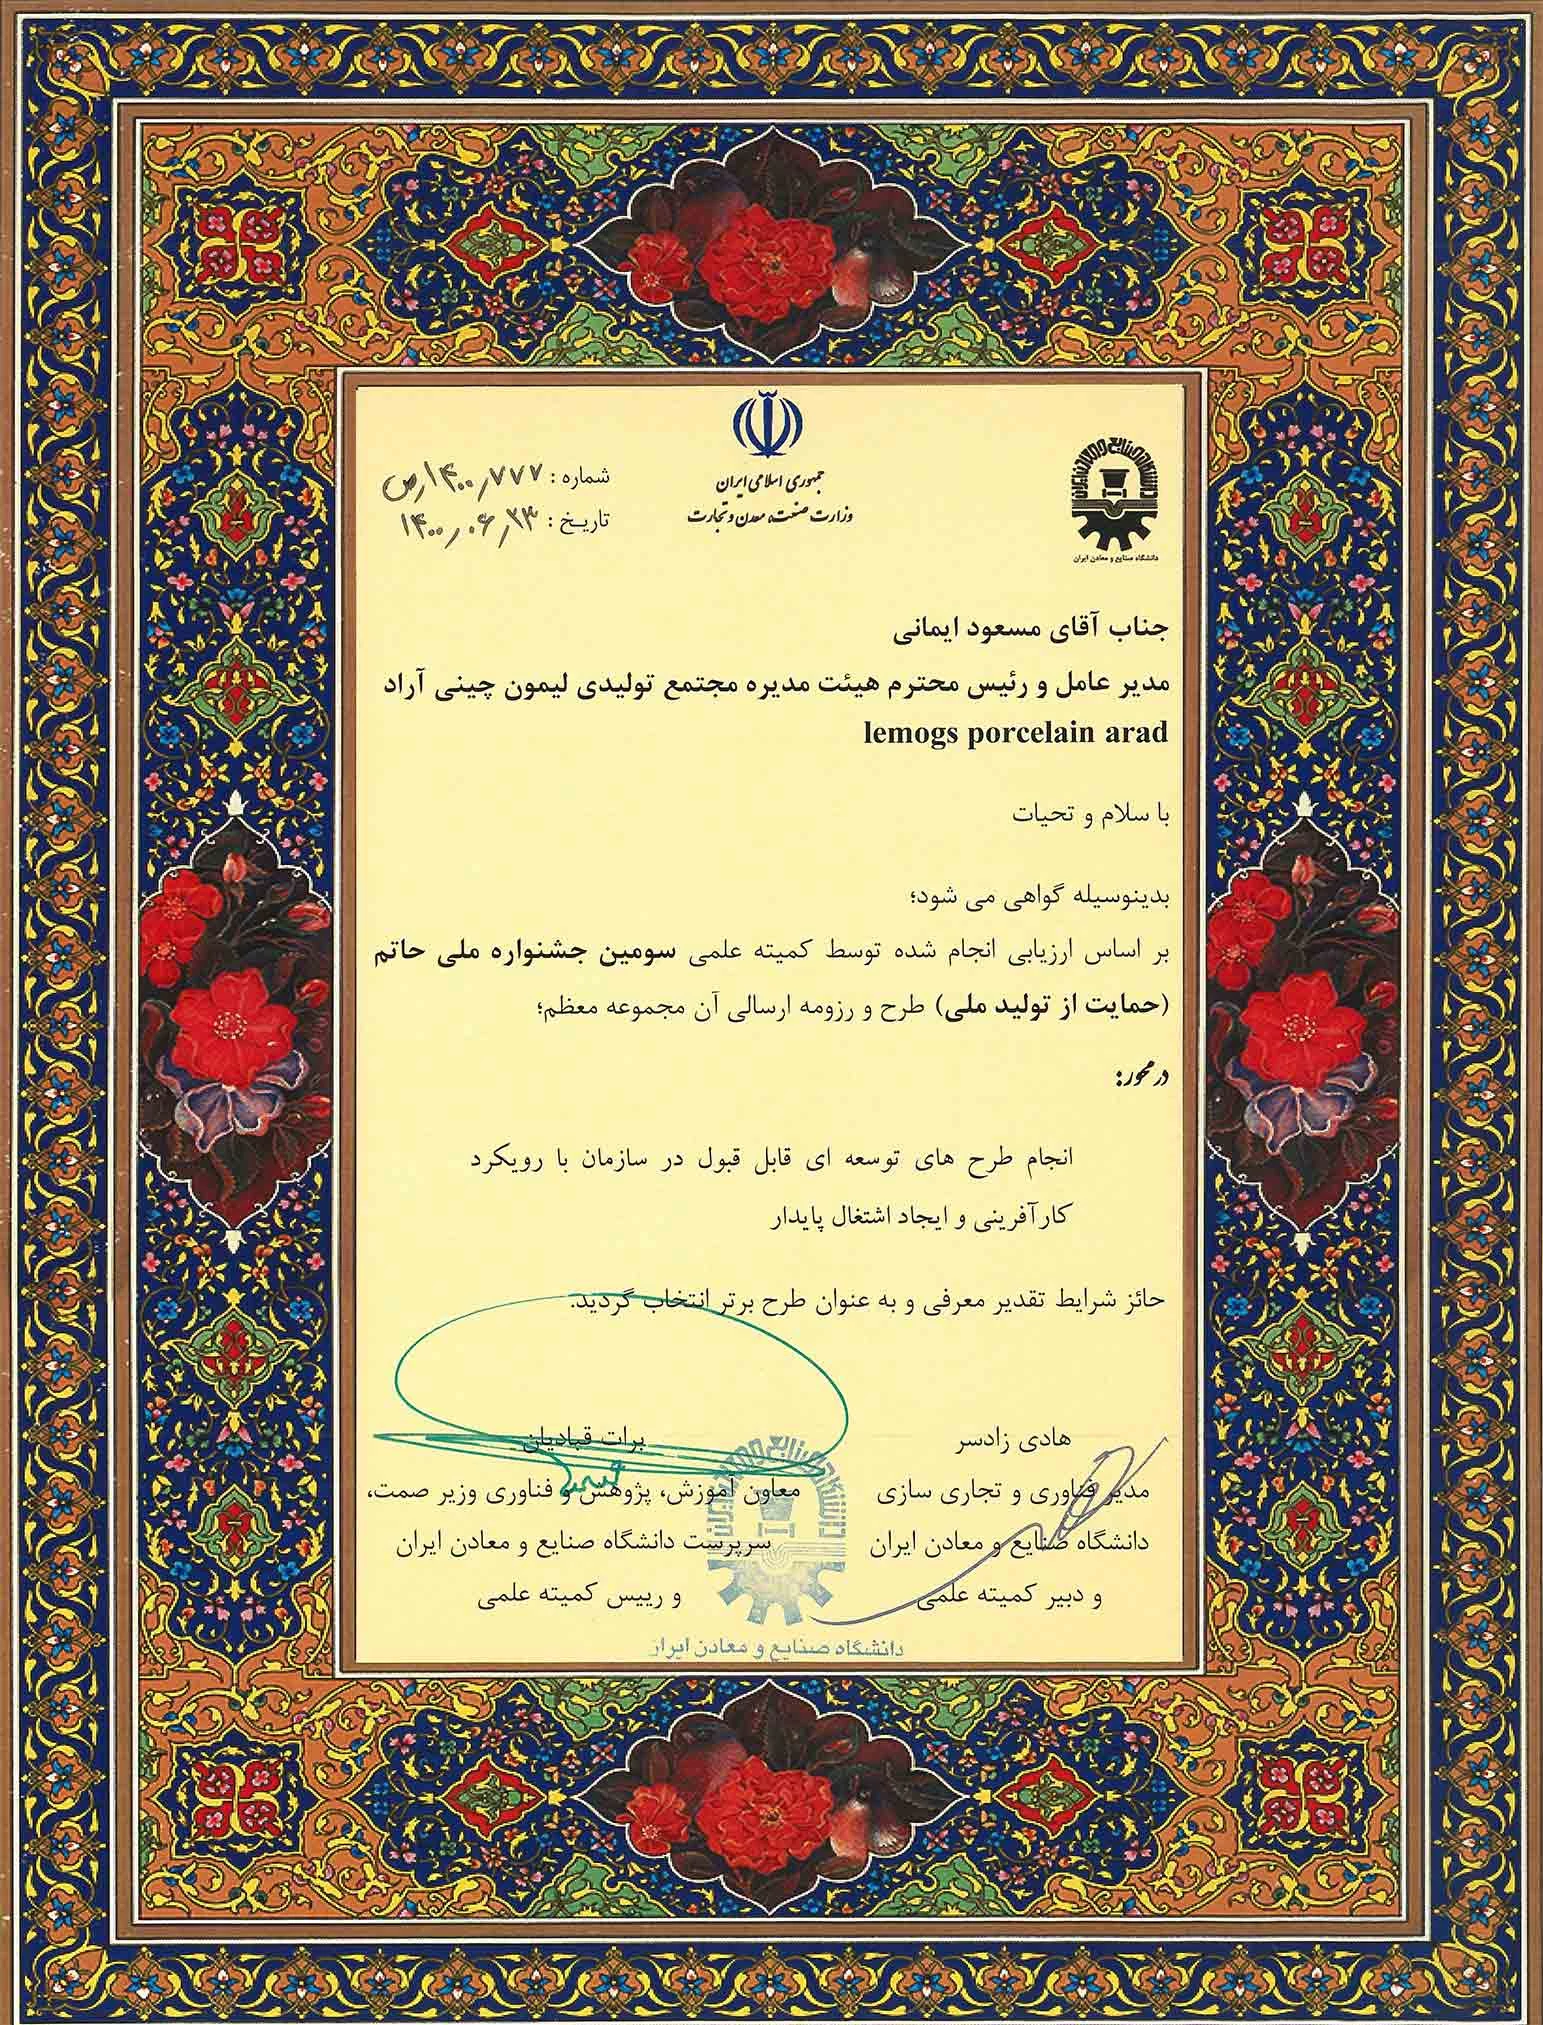 جمهوری اسلامی ایران
وزارت صنعت، معدن و تجارت
دانشگاه صنایع و معادن ایران
شماره : ۱۴۰۰٫۷۷۷٫ص
تاریخ : ۱۴۰۰٫۰۶٫۲۳
جناب آقای مسعود ایمانی
مدیر عامل و رئیس محترم هیئت مدیره مجتمع تولیدی لیمون چینی آراد
lemogs porcelain arad
با سلام و تحیات
بدینوسیله گواهی می شود؛
بر اساس ارزیابی انجام شده توسط کمیته علمی سومین جشنواره ملی حاتم
(حمایت از تولید ملی) طرح و رزومه ارسالی آن مجموعه معظم؛
در محور:
انجام طرح های توسعه ای قابل قبول در سازمان با رویکرد
کارآفرینی و ایجاد اشتغال پایدار
حائز شرایط تقدیر معرفی و به عنوان طرح برتر انتخاب گردید.
هادی زادسر
مدیر فناوری و تجاری سازی
دانشگاه صنایع و معادن ایران
و دبیر کمیته علمی
برات قبادیان
معاون آموزش، پژوهش و فناوری وزیر صمت،
سرپرست دانشگاه صنایع و معادن ایران
و رییس کمیته علمی
دانشگاه صنایع و معادن ایران